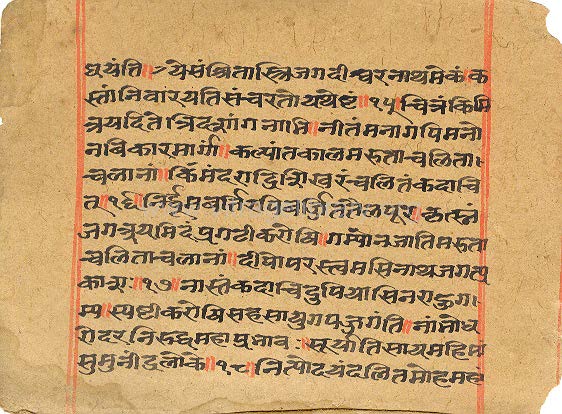 घयंति॥ ये संश्रितास्त्रिजगदीश्वरनाथमेकं क
स्तांनिवारयतिसंचरतो यथेष्टं॥१५॥चित्रंकिमि
त्रयदितेत्रिदशांगनाभि॥नीतंमनागपिमनो
नविकारमार्गं॥कल्पांतकालमरुताचलिता॰
चलानां॥किंमंदराद्रिशिखरंचलितंकदाचि
त्॥१६॥निर्धूमवर्तिरपवर्जिततैलपूरः कृत्स्नं
जगत्रयमिदंप्रगटीकरोषि॥गम्योनजातिमरुता
चलिताचलानां॥दीपोपरस्त्वमसिनाथजगत्प्र
काशः॥१७॥नास्तंकदाचिदुपियासिनराहुग॰
म्य॥स्पष्टीकरोषिसहसायुगपजुगंति॥नांभोध
रोदरनिरुद्धमहाप्रभावः॥सूर्यातिसायमहिमा
सुमुनींद्रलोके॥१८॥नित्योदयंदलितमोहमहां